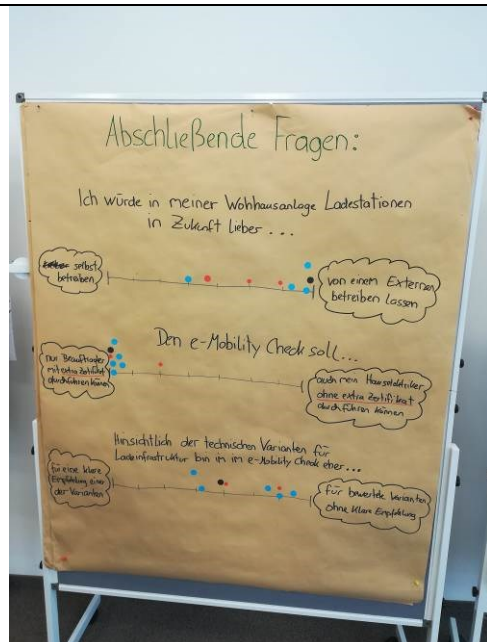 Abschließende Fragen:
Ich würde in meiner Wohnhausanlage Ladestationen
in Zukunft lieber ...
selbst
betreiben
von einem Externen
betreiben lassen
Den e-Mobility Check soll...
nur Beauftragter
mit extra Zertifikat
durchführen können
auch mein Hauselektriker
ohne extra Zertifikat
durchführen können
Hinsichtlich der technischen Varianten für
Ladeinfrastruktur bin in im e-Mobility Check eher...
für eine klare
Empfehlung einer
der Varianten
für bewertete Varianten
ohne klare Empfehlung